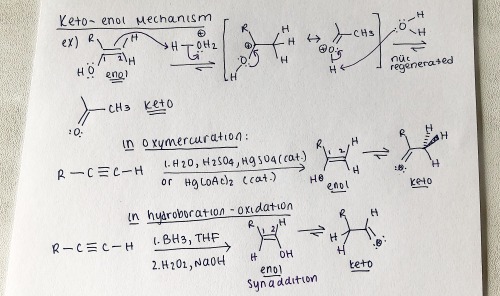 Keto-enol Mechanism
ex) R H H-OH2 ⊕
1 2 H
HÖ enol
R ⊕ H H H Ö H ↔ CH3 ⊕Ö H
Ö H H
nüc regenerated
CH3 Keto
:O:
in oxymercuration:
R-C≡C-H 1. H2O, H2SO4, HgSO4 (cat.)
or Hg(OAc)2 (cat.)
R 1 2 H H HO enol ⇌ R H H H :O: keto
in hydroboration-oxidation
R-C≡C-H 1. BH3, THF
2. H2O2, NaOH
R 1 2 H H OH enol ⇌ R H H H O keto
Syn addition